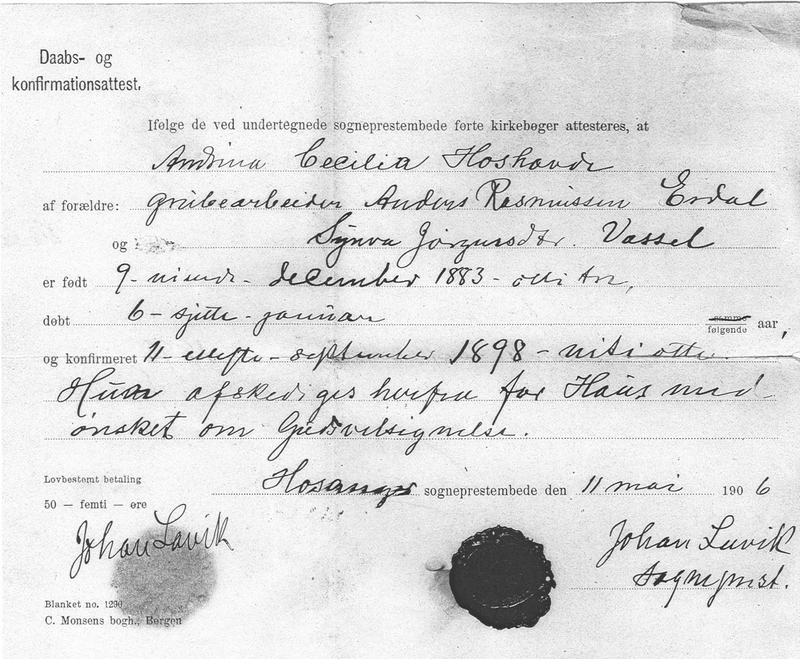 Daabs- og
konfirmationsattest.
Ifølge de ved undertegnede sogneprestembede førte kirkebøger attesteres, at
Andrina Cecilia Hoshovde
af forældre: grubearbeider Anders Rasmussen Erdal
og Synva Jørgensdtr. Vassel
er født 9 - niende - december 1883 - otti tre,
døbt 6 - sjette - januar samme følgende aar,
og konfirmeret 11 - ellefte - september 1898 - niti otte.
Hun afskediges herfra for Haus med
ønsket om Guds velsignelse.
Lovbestemt betaling
Hosanger sogneprestembede den 11 mai 1906
50 — femti — øre
Johan Lavik
Johan Lavik
Sogneprest.
Blanket no. 1290
C. Monsens bogh., Bergen